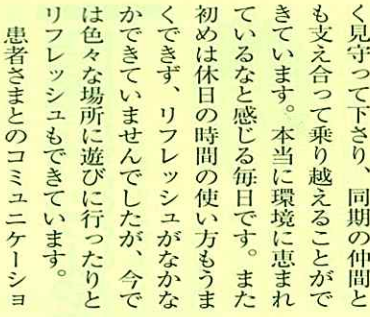 く見守って下さり、同期の仲間と
も支え合って乗り越えることがで
きています。本当に環境に恵まれ
ているなと感じる毎日です。また
初めは休日の時間の使い方もうま
くできず、リフレッシュがなかな
かできていませんでしたが、今で
は色々な場所に遊びに行ったりと
リフレッシュもできています。
患者さまとのコミュニケーショ